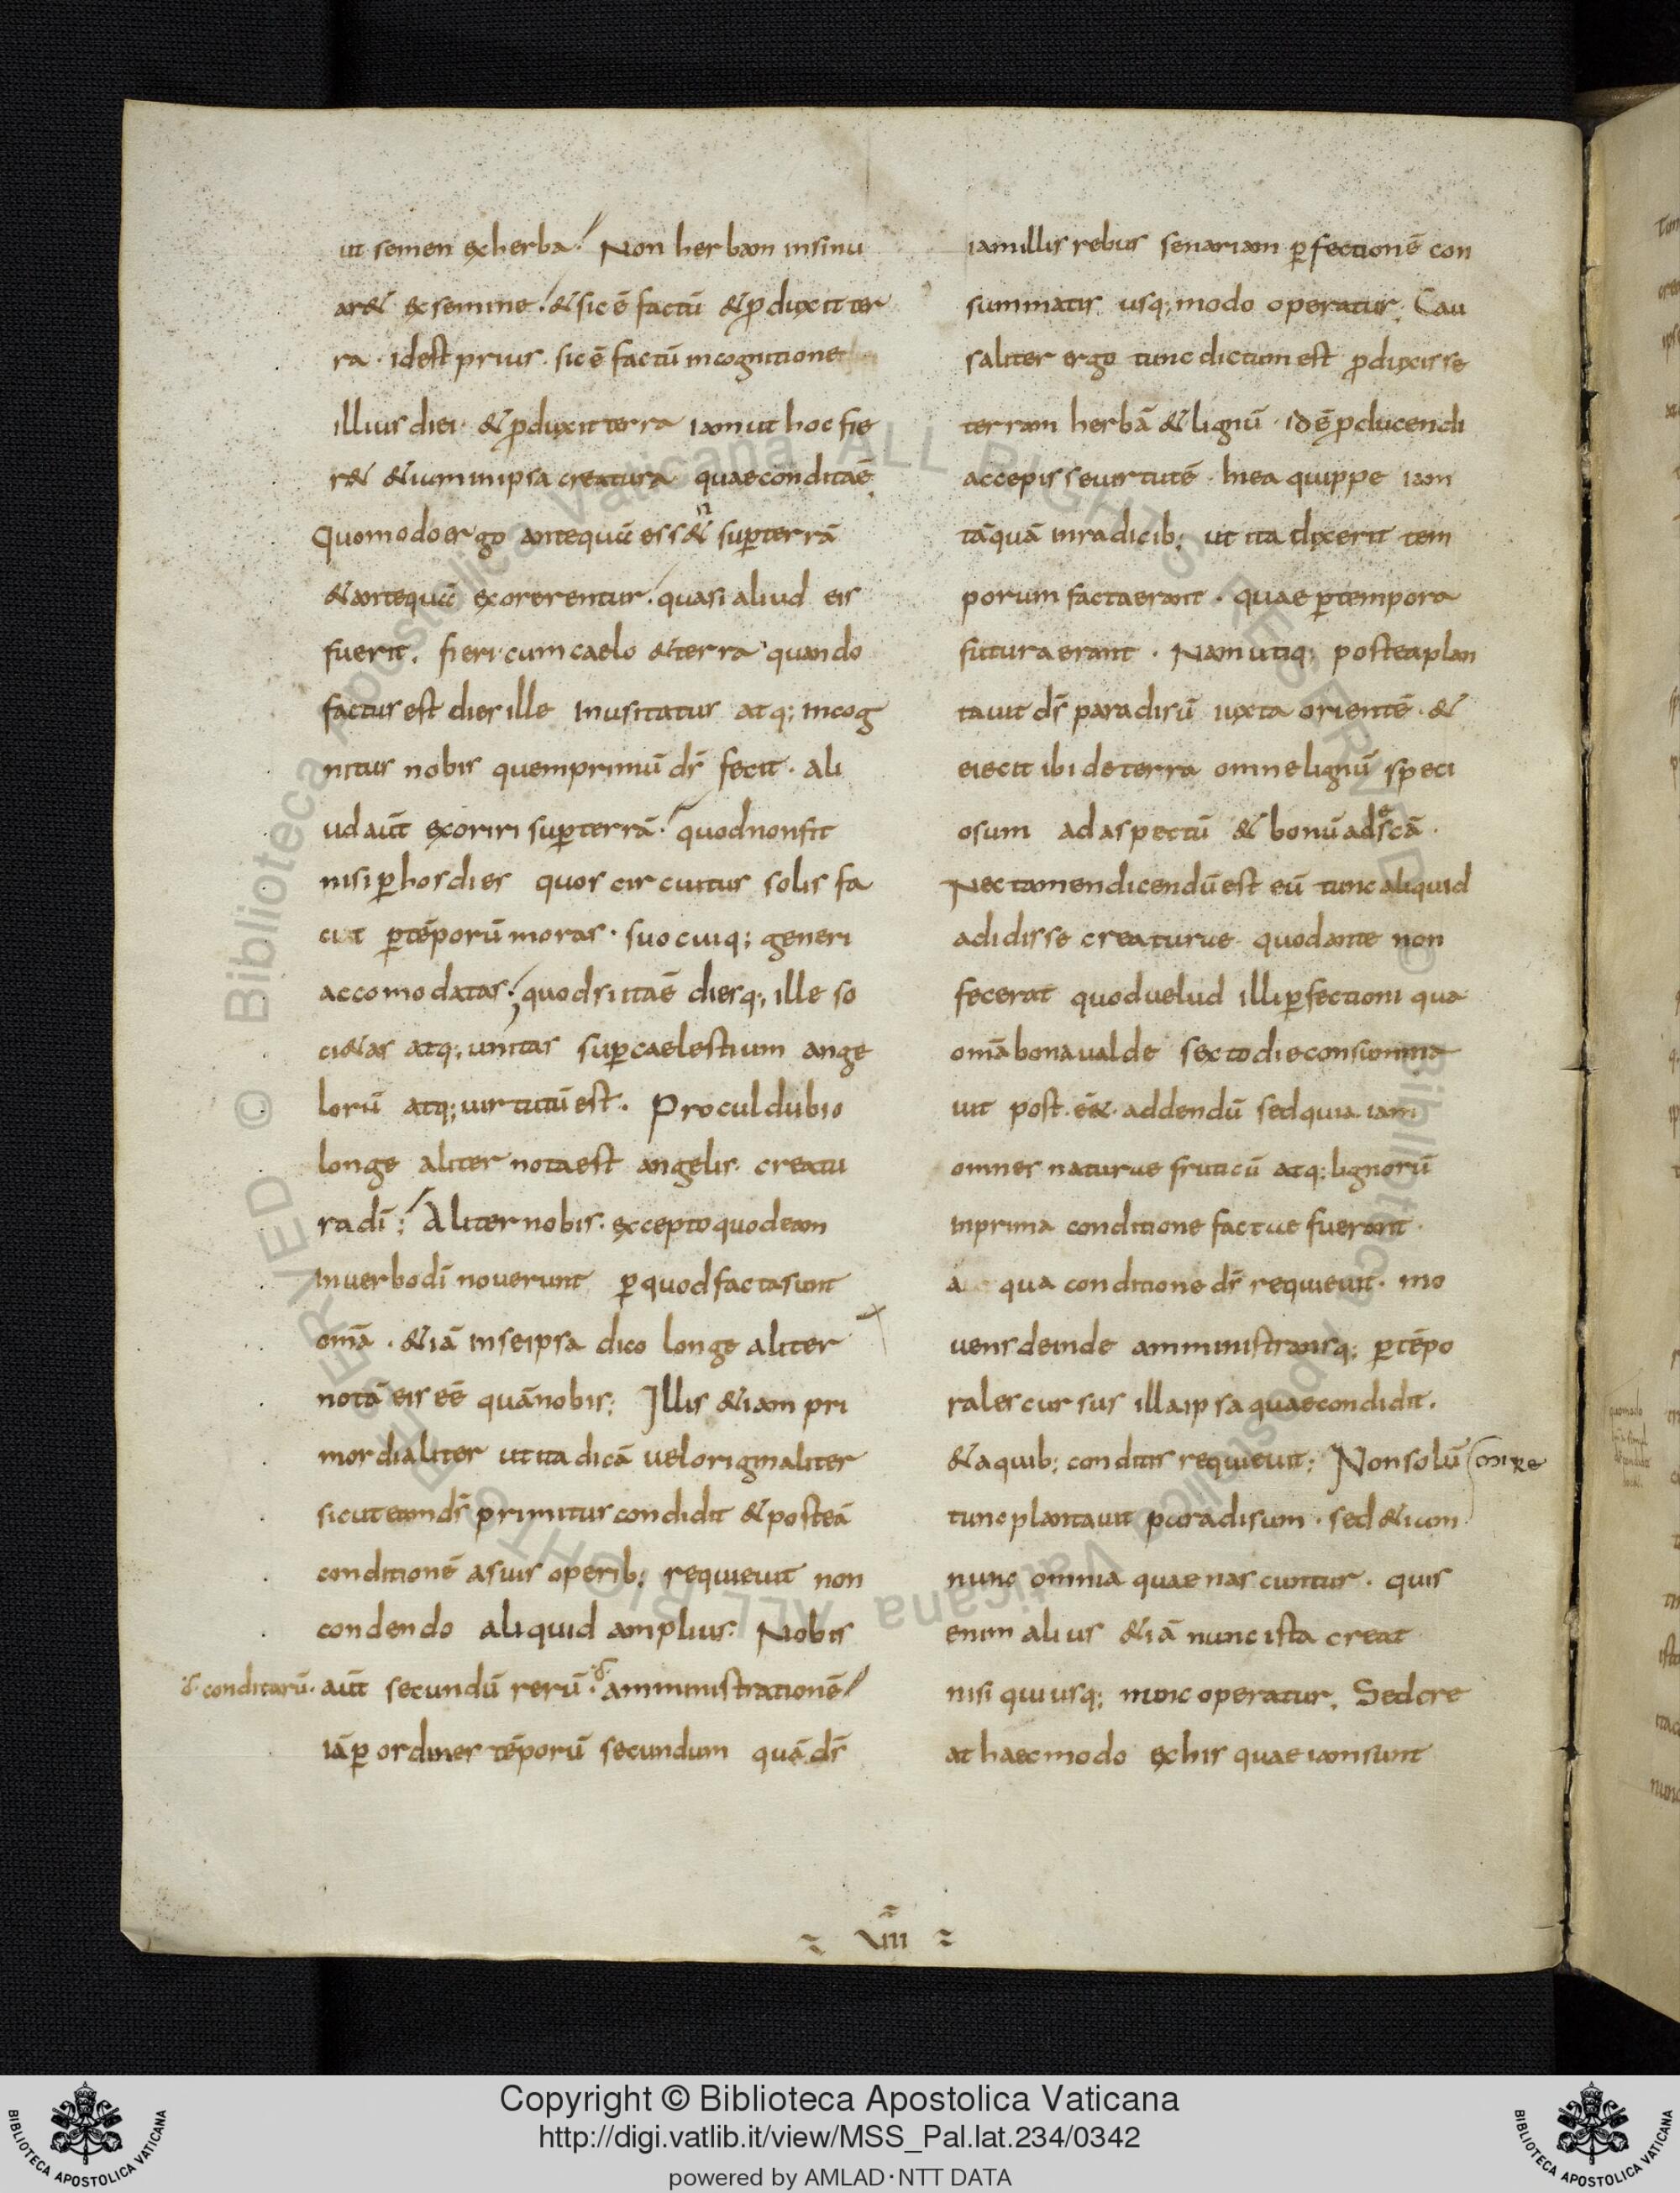 ut semen ex herba. Non herbam insinu
ar& ex semine. & sic ē factū & ꝓduxit ter
ra · id est prius · sic ē factū in cognitione
illius diei · & ꝓduxit terra iam ut hoc fie
r& &iam in ipsa creatura quae condita ē
Quomodo ergo antequā essn& suꝑ terrā
& antequā exorerentur. quasi aliud eis
fuerit. fieri cum caelo & terra quando
factus est dies ille inusitatus atq; incog
nitus nobis quem primū ds̄ fecit · ali
ud aūt exoriri suꝑ terrā. quod non fit
nisi ꝑ hos dies quos circuitus solis fa
cit ꝑ tēporū moras · suo cuiq; generi
accomodatas. quod si ita ē diesq; ille so
ci&as atq; unitas suꝑcaelestium ange
lorū atq; uirtutū est. Procul dubio
longe aliter nota est angelis · creatu
ra dī; Aliter nobis · excepto quod eam
in uerbo dī nouerunt ꝑ quod facta sunt
om̄a · &iā in se ipsa dico longe aliter
notā eis eē quā nobis; Illis &iam pri
mordialiter ut ita dicā uel originaliter
sicut eam ds̄ primitus condidit & posteā
conditionē a suis operib; requieuit non
condendo aliquid amplius. Nobis
·δ· conditarū · aūt secundū rerū ·δ· amministrationē
iā ꝑ ordines tēporū secundum quā ds̄
iam illis rebus senariam ꝑfectionē con
summatis usq; modo operatur. Cau
saliter ergo tunc dictum est ꝓduxisse
terram herbā & lignū · id ē ꝓducendi
accepisse uirtutē · In ea quippe iam
tāquā in radicib; ut ita dixerit tem
porum facta erant · quae ꝑ tempora
futura erant · Nam utiq; postea plan
tauit ds̄ paradisū iuxta orientē · &
eiecit ibi de terra omne lignū speci
osum ad aspectū & bonū ad escā ·
Nec tamen dicendū est eū tunc aliquid
adidisse creaturae · quod ante non
fecerat quod uelud illi ꝑfectioni qua
om̄a bona ualde sexto die consumma
uit post · eēt · addendū sed quia iam
omnes naturae fruticū atq; lignorū
in prima conditione factae fuerant ·
a qua conditione ds̄ requieuit · mo
uens deinde amministransq; ꝑ tēpo
rales cursus illa ipsa quae condidit.
& a quib; conditis requieuit; Non solū om̄ re
tunc plantauit paradisum · sed &iam
nunc omnia quae nascuntur · quis
enim alius &iā nunc ista creat
nisi qui usq; nunc operatur. Sed cre
at haec modo ex his quae iam sunt
VIIII
Copyright © Biblioteca Apostolica Vaticana
http://digi.vatlib.it/view/MSS_Pal.lat.234/0342
powered by AMLAD·NTT DATA
BIBLIOTECA APOSTOLICA VATICANA
BIBLIOTECA APOSTOLICA VATICANA